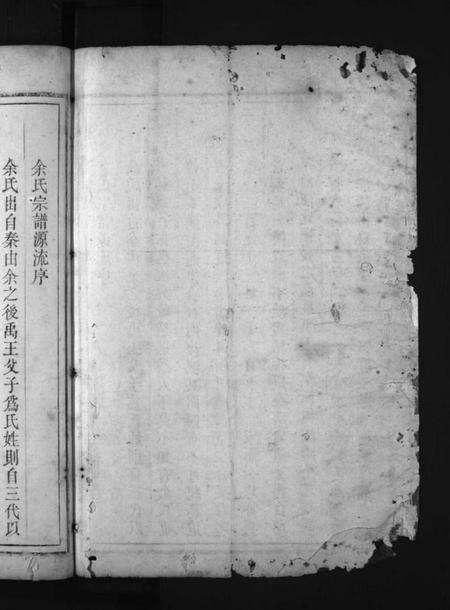 余氏宗譜源流序
余氏出自秦由余之後禹王支子爲氏姓則自三代以